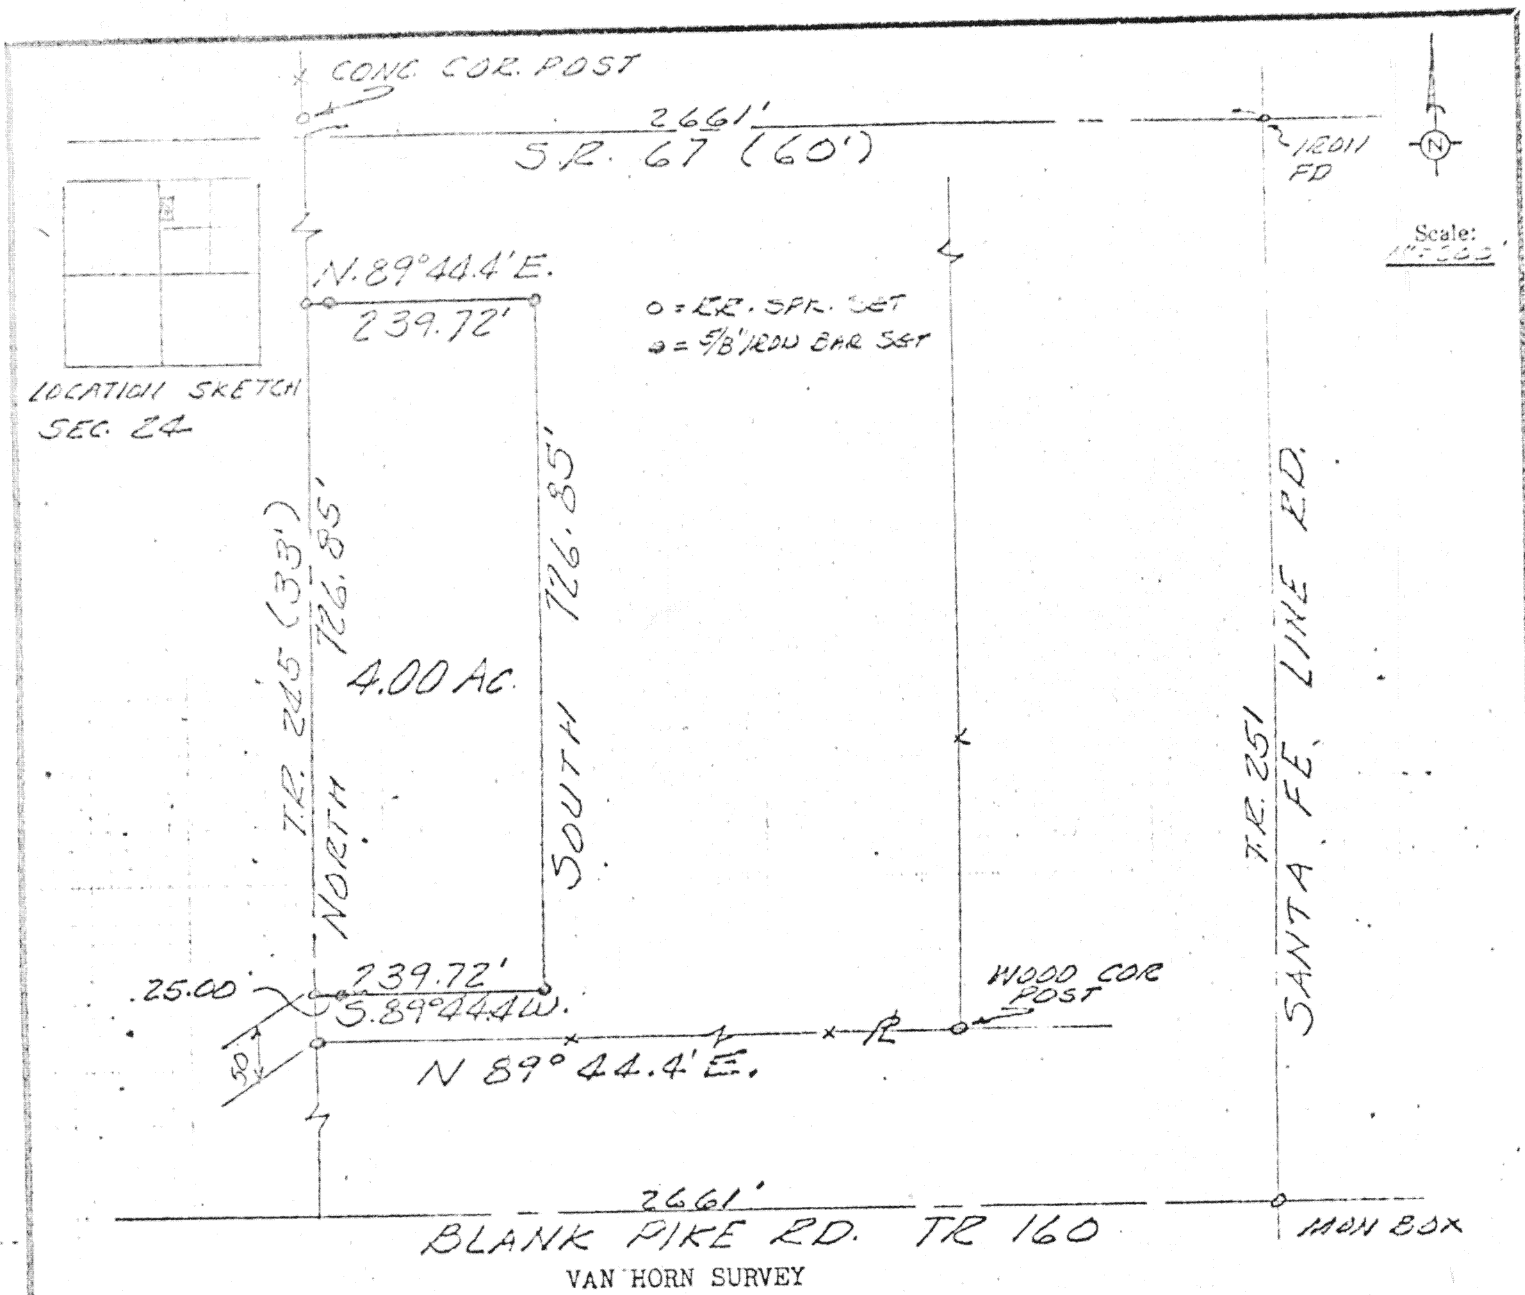 CONC. COR. POST
2661'
S.R. 67 (60')
IRON
FD
N
Scale:
N. 89°44.4' E.
239.72'
O = R.R. SPK. SET
= 5/8" IRON BAR SET
LOCATION SKETCH
SEC. 24
T.R. 245 (33')
NORTH 726.85'
4.00 AC.
SOUTH 726.85'
T.R. 251
SANTA FE, LINE RD.
.25.00
239.72'
S. 89°44.4 W.
50'
WOOD COR
POST
N 89° 44.4' E.
2661'
BLANK PIKE RD. TR 160
MON BOX
VAN HORN SURVEY